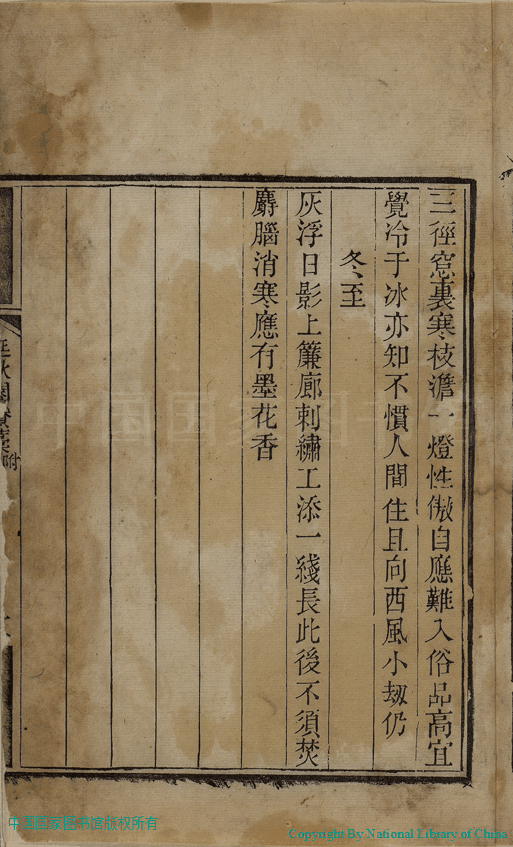 三徑窓裏寒枝澹一燈性傲自應難入俗品高宜
覺冷于冰亦知不慣人間住且向西風小刼仍
冬至
灰浮日影上簾廊刺繡工添一綫長此後不須焚
麝腦消寒應有墨花香
附
中国国家图书馆版权所有
Copyright By National Library of China